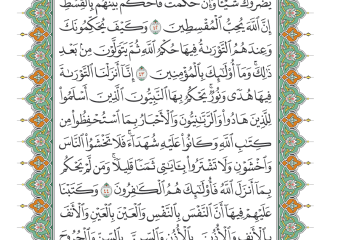 يَضُرُّوكَ شَيْـًٔا وَإِنْ حَكَمْتَ فَٱحْكُم بَيْنَهُم بِٱلْقِسْطِ
إِنَّ ٱللَّهَ يُحِبُّ ٱلْمُقْسِطِينَ ۝٤٢ وَكَيْفَ يُحَكِّمُونَكَ
وَعِندَهُمُ ٱلتَّوْرَىٰةُ فِيهَا حُكْمُ ٱللَّهِ ثُمَّ يَتَوَلَّوْنَ مِنۢ بَعْدِ
ذَٰلِكَ ۚ وَمَآ أُو۟لَـٰٓئِكَ بِٱلْمُؤْمِنِينَ ۝٤٣ إِنَّآ أَنزَلْنَا ٱلتَّوْرَىٰةَ
فِيهَا هُدًى وَنُورٌ ۚ يَحْكُمُ بِهَا ٱلنَّبِيُّونَ ٱلَّذِينَ أَسْلَمُوا۟
لِلَّذِينَ هَادُوا۟ وَٱلرَّبَّـٰنِيُّونَ وَٱلْأَحْبَارُ بِمَا ٱسْتُحْفِظُوا۟ مِن
كِتَـٰبِ ٱللَّهِ وَكَانُوا۟ عَلَيْهِ شُهَدَآءَ ۚ فَلَا تَخْشَوُا۟ ٱلنَّاسَ
وَٱخْشَوْنِ وَلَا تَشْتَرُوا۟ بِـَٔايَـٰتِى ثَمَنًا قَلِيلًا ۚ وَمَن لَّمْ يَحْكُم
بِمَآ أَنزَلَ ٱللَّهُ فَأُو۟لَـٰٓئِكَ هُمُ ٱلْكَـٰفِرُونَ ۝٤٤ وَكَتَبْنَا
عَلَيْهِمْ فِيهَآ أَنَّ ٱلنَّفْسَ بِٱلنَّفْسِ وَٱلْعَيْنَ بِٱلْعَيْنِ وَٱلْأَنفَ
بِٱلْأَنفِ وَٱلْأُذُنَ بِٱلْأُذُنِ وَٱلسِّنَّ بِٱلسِّنِّ وَٱلْجُرُوحَ